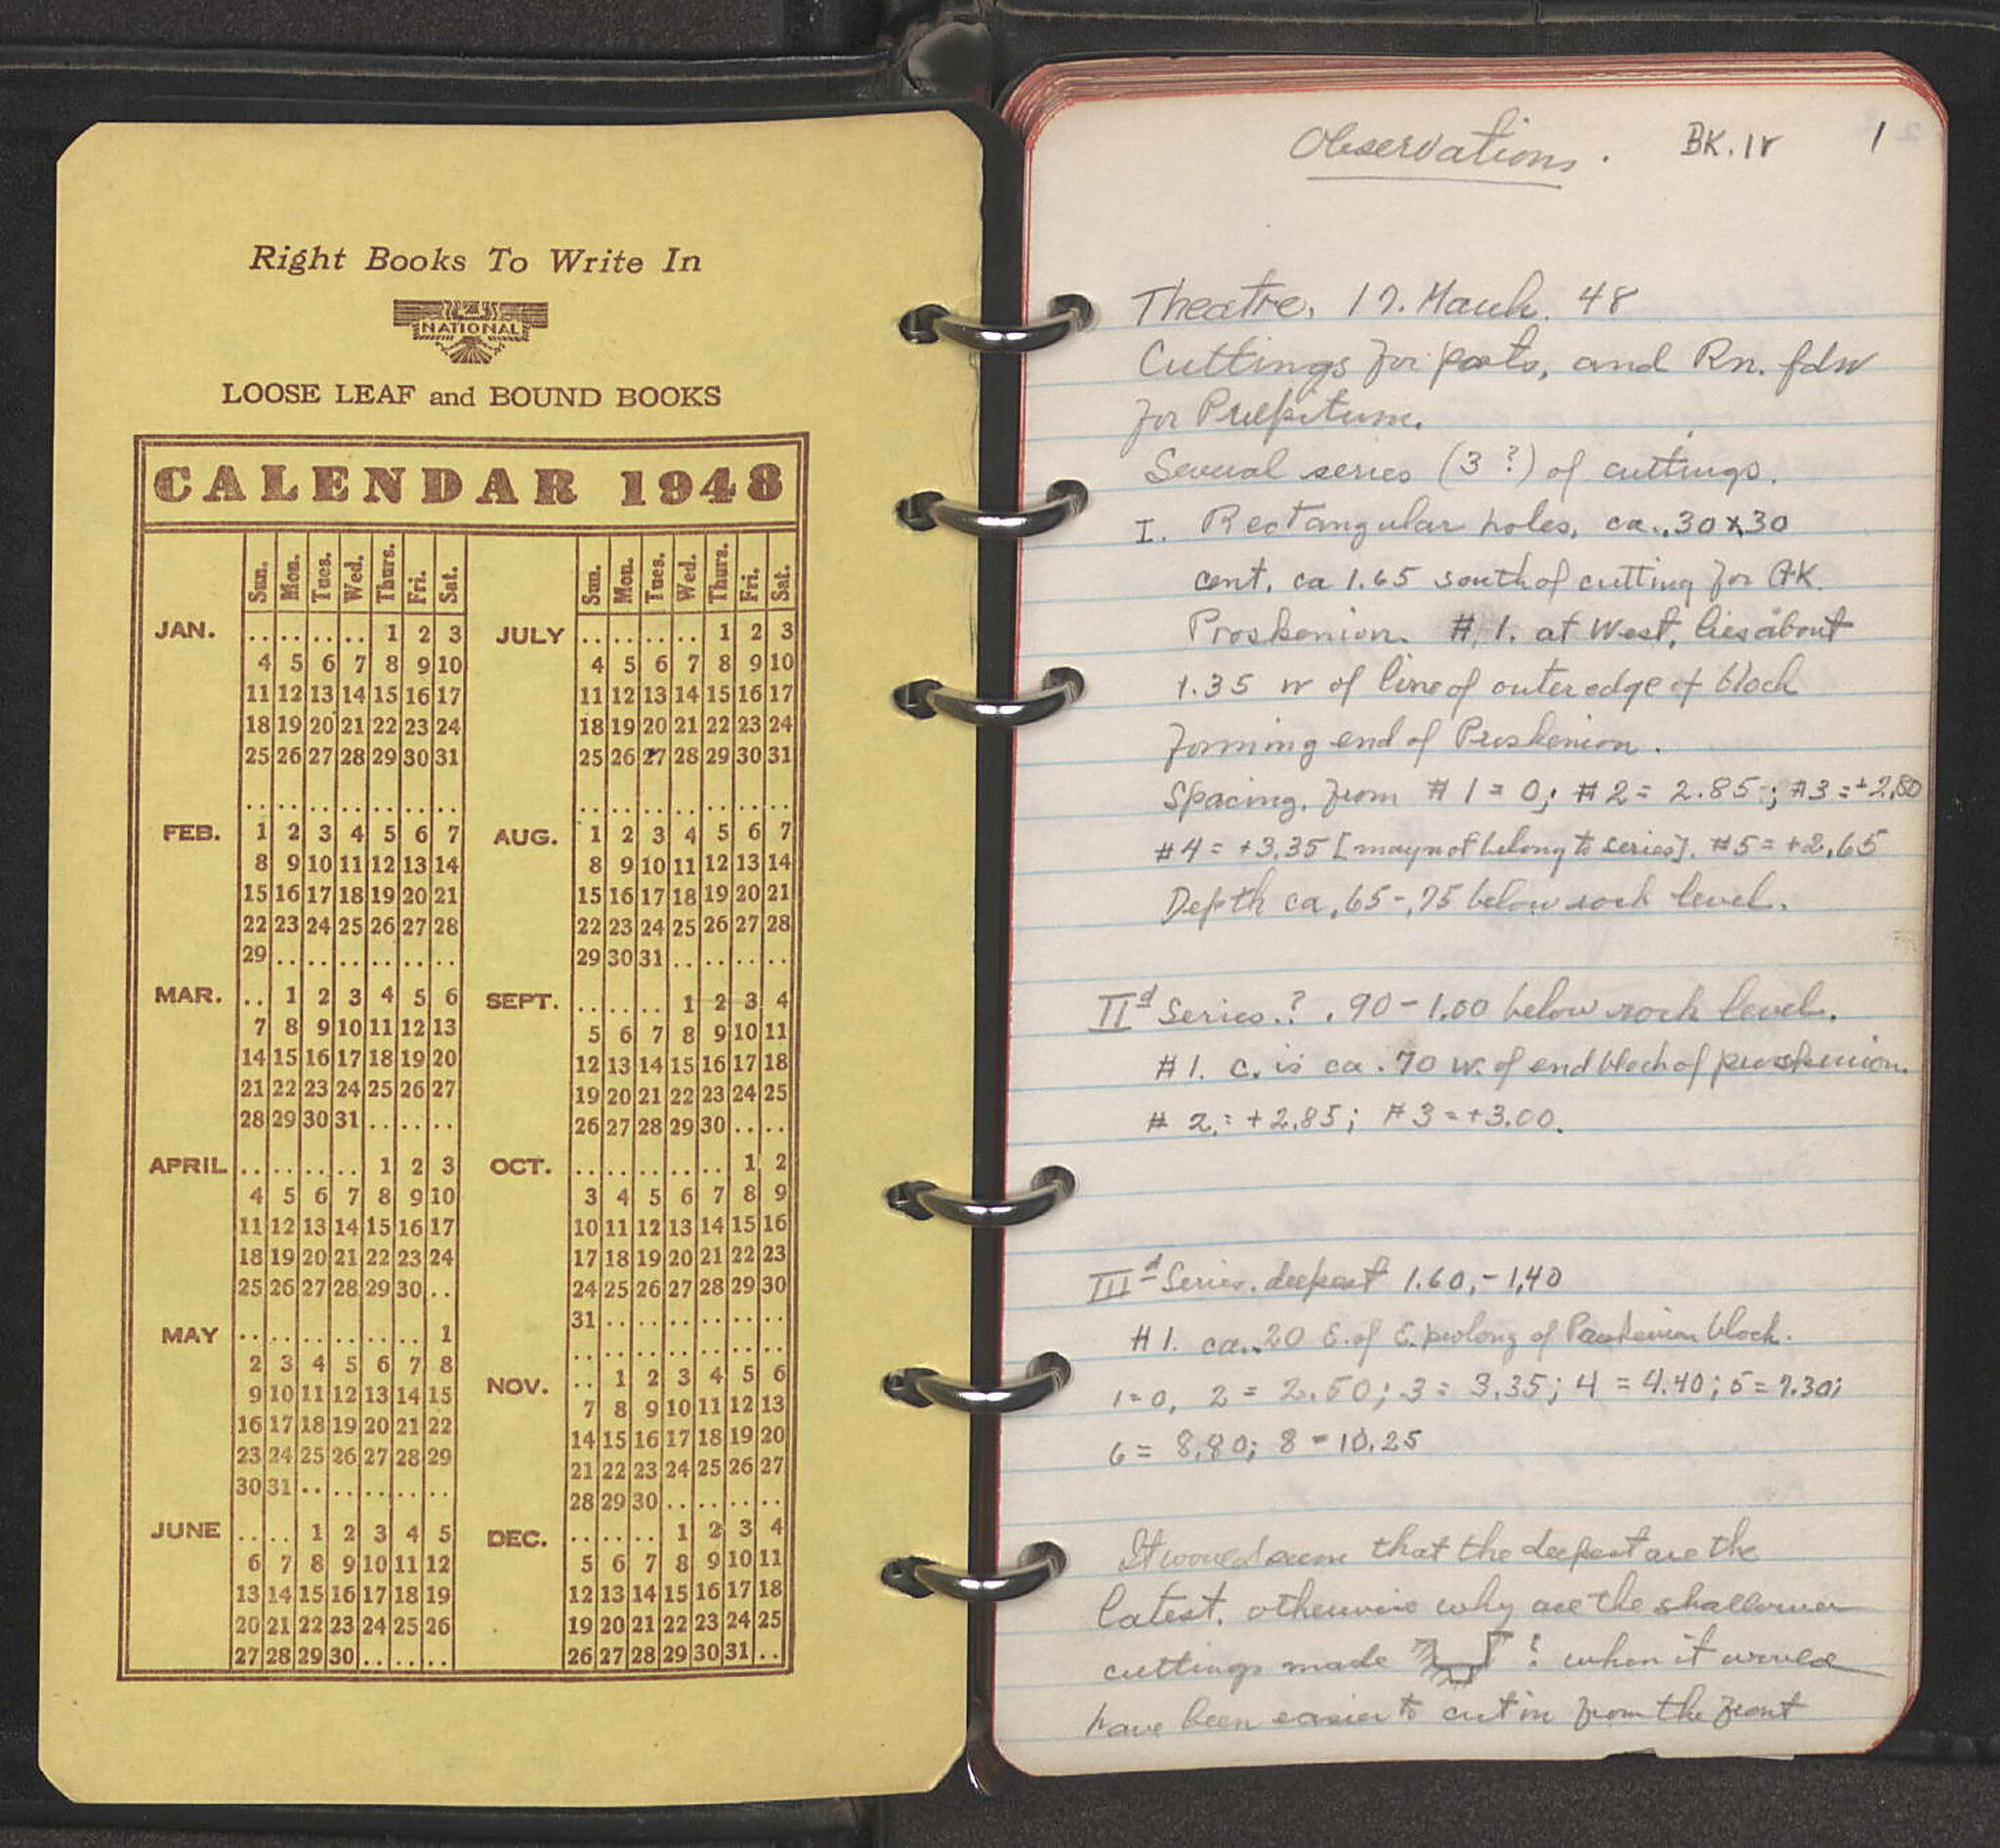 Right Books To Write In
NATIONAL
LOOSE LEAF and BOUND BOOKS
CALENDAR 1948
Sun. Mon. Tues. Wed. Thurs. Fri. Sat.
JAN. .. .. .. .. 1 2 3
4 5 6 7 8 9 10
11 12 13 14 15 16 17
18 19 20 21 22 23 24
25 26 27 28 29 30 31
.. .. .. .. .. .. ..
FEB. 1 2 3 4 5 6 7
8 9 10 11 12 13 14
15 16 17 18 19 20 21
22 23 24 25 26 27 28
29 .. .. .. .. .. ..
MAR. .. 1 2 3 4 5 6
7 8 9 10 11 12 13
14 15 16 17 18 19 20
21 22 23 24 25 26 27
28 29 30 31 .. .. ..
APRIL .. .. .. .. 1 2 3
4 5 6 7 8 9 10
11 12 13 14 15 16 17
18 19 20 21 22 23 24
25 26 27 28 29 30 ..
MAY .. .. .. .. .. .. 1
2 3 4 5 6 7 8
9 10 11 12 13 14 15
16 17 18 19 20 21 22
23 24 25 26 27 28 29
30 31 .. .. .. .. ..
JUNE .. .. 1 2 3 4 5
6 7 8 9 10 11 12
13 14 15 16 17 18 19
20 21 22 23 24 25 26
27 28 29 30 .. .. ..
Sun. Mon. Tues. Wed. Thurs. Fri. Sat.
JULY .. .. .. .. 1 2 3
4 5 6 7 8 9 10
11 12 13 14 15 16 17
18 19 20 21 22 23 24
25 26 27 28 29 30 31
.. .. .. .. .. .. ..
AUG. 1 2 3 4 5 6 7
8 9 10 11 12 13 14
15 16 17 18 19 20 21
22 23 24 25 26 27 28
29 30 31 .. .. .. ..
SEPT. .. .. .. 1 2 3 4
5 6 7 8 9 10 11
12 13 14 15 16 17 18
19 20 21 22 23 24 25
26 27 28 29 30 .. ..
OCT. .. .. .. .. .. 1 2
3 4 5 6 7 8 9
10 11 12 13 14 15 16
17 18 19 20 21 22 23
24 25 26 27 28 29 30
31 .. .. .. .. .. ..
.. .. .. .. .. .. ..
NOV. .. 1 2 3 4 5 6
7 8 9 10 11 12 13
14 15 16 17 18 19 20
21 22 23 24 25 26 27
28 29 30 .. .. .. ..
DEC. .. .. .. 1 2 3 4
5 6 7 8 9 10 11
12 13 14 15 16 17 18
19 20 21 22 23 24 25
26 27 28 29 30 31 ..
Observations. BK. 1 1
Theatre, 17. March. 48
Cuttings for posts, and Rn. fdn
for Pulpitum.
Several series (3 ?) of cuttings.
I. Rectangular holes, ca. .30 x .30
cent. ca 1.65 south of cutting for GK.
Proskenion. # 1. at West, lies about
1.35 W of line of outer edge of block
forming end of Proskenion.
Spacing. from # 1 = 0; # 2 = 2.85; #3 = +2.80
#4 = +3.35 [may not belong to series]. #5 = +2.65
Depth ca .65-.75 below rock level.
IId Series.? .90-1.00 below rock level.
#1. C. is ca .70 W. of end block of proskenion.
# 2. = +2.85; # 3 = +3.00.
IIId Series. deepest 1.60,-1.40
#1. ca. .20 E. of E. prolong of Proskenion block.
1=0, 2 = 2.50; 3 = 3.35; 4 = 4.40; 5 = 7.30;
6 = 8.80; 8 = 10.25
It would seem that the deepest are the
latest. otherwise why are the shallower
cuttings made ? when it would
have been easier to cut in from the front